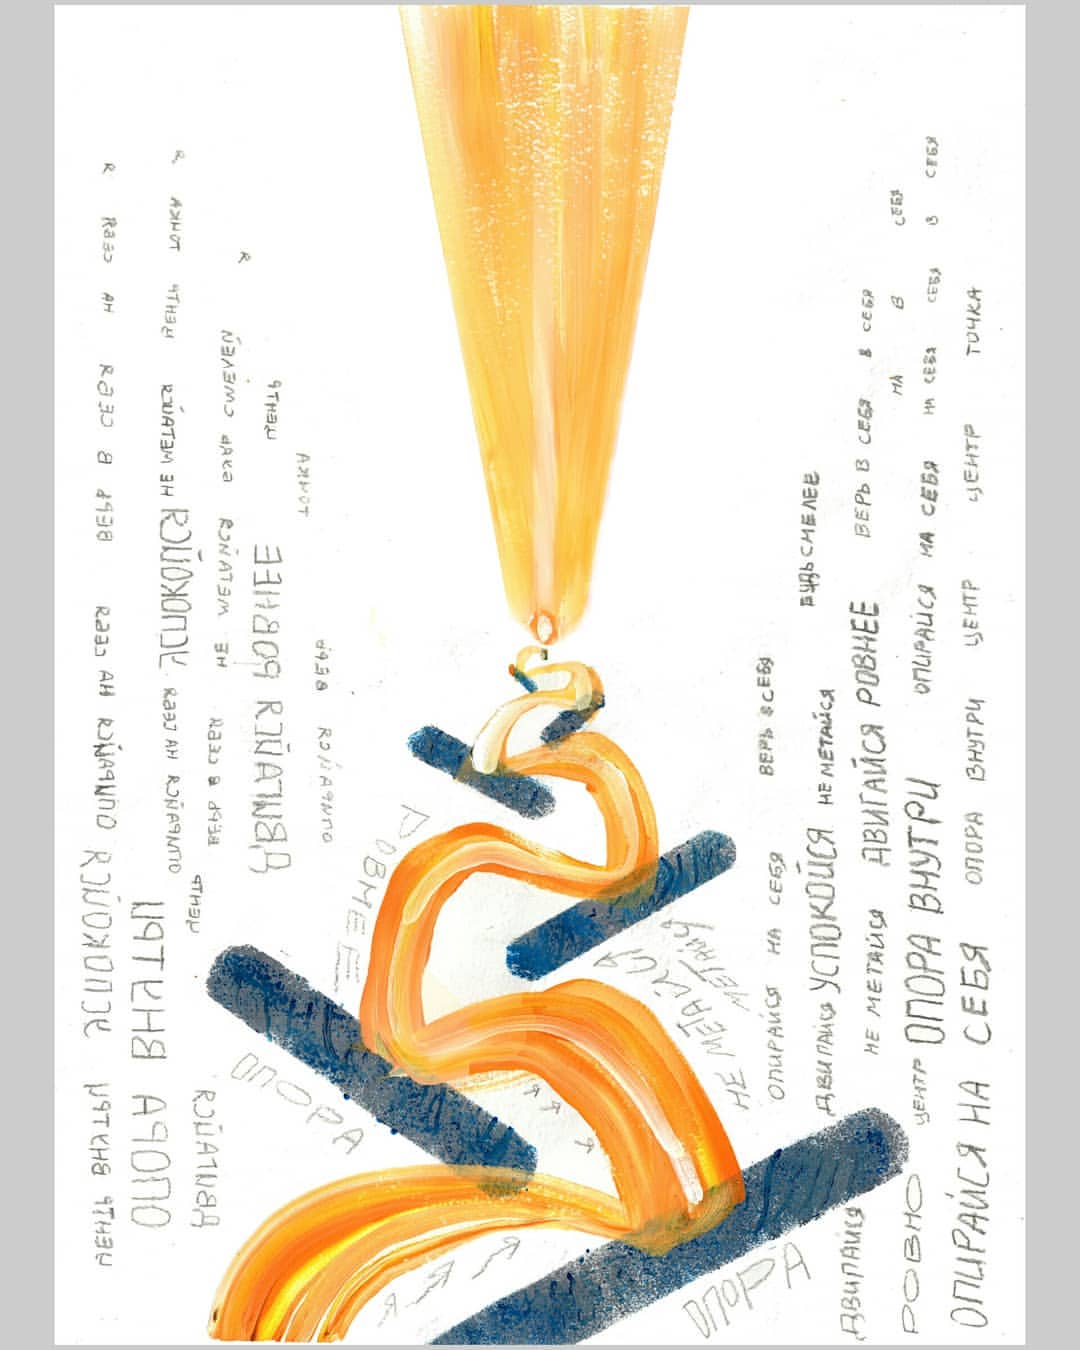 ЦЕНТР ВНУТРИ УСПОКОЙСЯ ОПИРАЙСЯ НА СЕБЯ ВЕРЬ В СЕБЯ НА СЕБЯ Я
ОПОРА ВНУТРИ
ОПИРАЙСЯ НА СЕБЯ УСПОКОЙСЯ НЕ МЕТАЙСЯ ЦЕНТР ТОЧКА Я
ДВИГАЙСЯ ЦЕНТР ВЕРЬ В СЕБЯ НЕ МЕТАЙСЯ БУДЬ СМЕЛЕЙ Я
ДВИГАЙСЯ РОВНЕЕ ЦЕНТР
ТОЧКА
ОПИРАЙСЯ ВЕРЬ
РОВНЕЕ
ОПОРА
Я Я Я
Я Я Я
НЕ МЕТАЙСЯ
МЕТАЙСЯ
ОПОРА
ОПИРАЙСЯ НА СЕБЯ ВЕРЬ В СЕБЯ
БУДЬ СМЕЛЕЕ
ДВИГАЙСЯ УСПОКОЙСЯ НЕ МЕТАЙСЯ
ДВИГАЙСЯ НЕ МЕТАЙСЯ ДВИГАЙСЯ РОВНЕЕ ВЕРЬ В СЕБЯ В СЕБЯ
НА В СЕБЯ
РОВНО ЦЕНТР ОПОРА ВНУТРИ ОПИРАЙСЯ НА СЕБЯ НА СЕБЯ СЕБЯ В СЕБЯ
ОПИРАЙСЯ НА СЕБЯ ОПОРА ВНУТРИ ЦЕНТР ЦЕНТР ТОЧКА